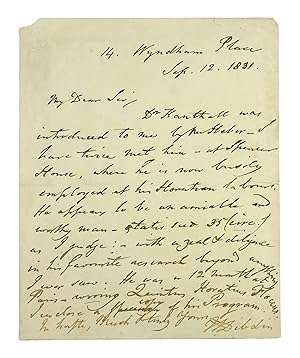 14. Wyndham Place
Sep. 12. 1831.
My Dear Sir,
Dr Hanthall was
introduced to me by Mr Heber - I
have twice met him - at Spencer
House, where he is now busily
employed at his Horatian labours.
He appears to be an amiable and
worthy man - states 35 (circ.)
as I judge: - with a zeal & diligence
in his favourite research beyond anything
I ever saw. He was a 12 month at
Paris Quintus Horatius Flaccus.
I enclose a copy of his Program.
In haste, Yours
T F Dibdin